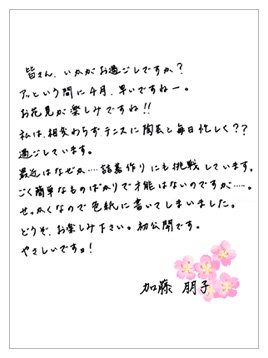 皆さん、いかがお過ごしですか?
アッという間に4月、早いですねー。
お花見が楽しみですね!!
私は、相変わらずテニスに陶芸と毎日忙しく??
過ごしています。
最近はなぜか‥‥詰碁作りにも挑戦しています。
ごく簡単なものばかりで才能はないのですが‥‥。
せっかくなので色紙に書いてしまいました。
どうぞ、お楽しみ下さい。初公開です。
やさしいですョ!
加藤 朋子